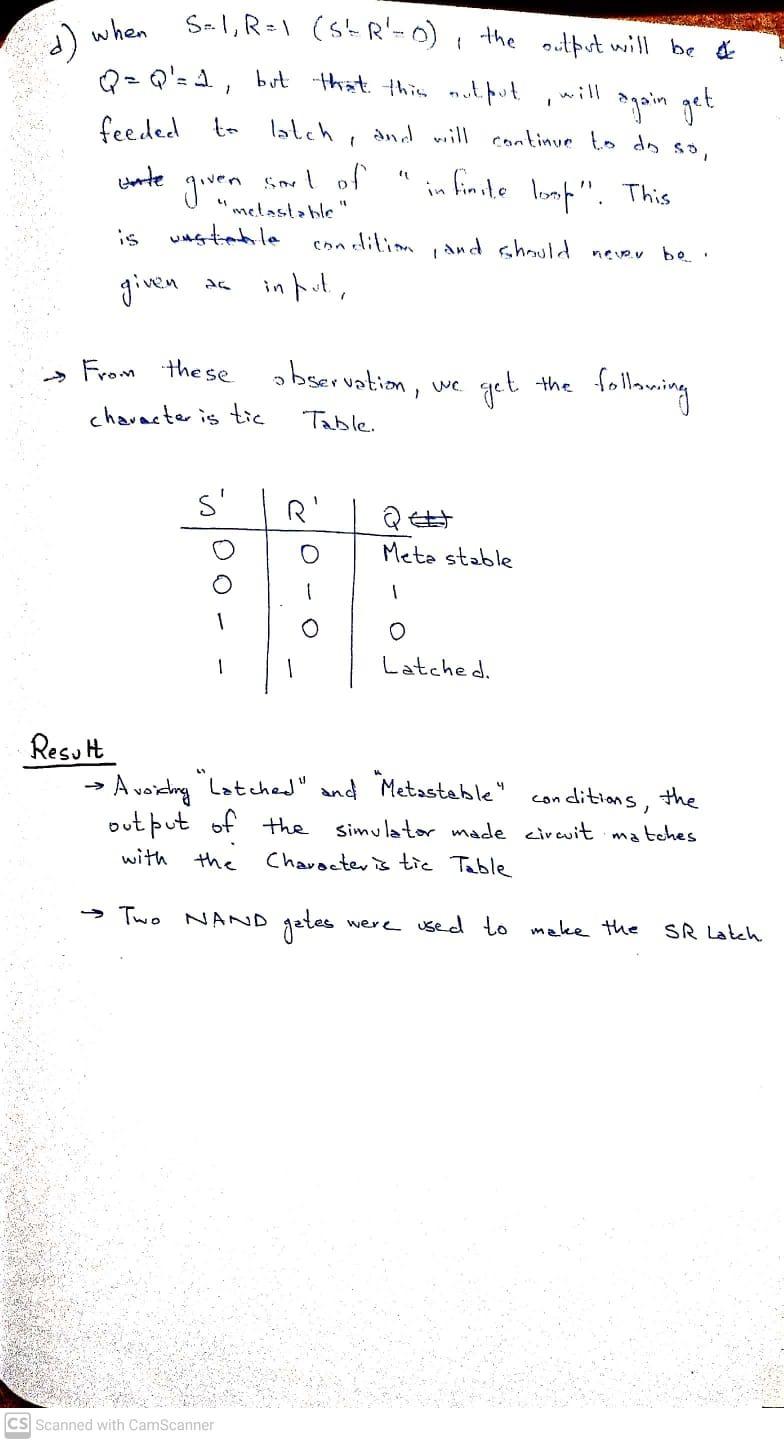 d) when S=1, R=1 (S'=R'=0), the output will be
Q=Q'=1, but that this output, will again get
feeded to latch, and will continue to do so,
given sort of "infinite loop". This
"metastable"
is unstable condition, and should never be
given as input,
→ From these observation, we get the following
characteristic Table.
S' | R' | Q
0 0 Meta stable
0 1 1
1 0 0
1 1 Latched.
Result
→ Avoiding "Latched" and "Metastable" conditions, the
output of the simulator made circuit matches
with the Characteristic Table
→ Two NAND gates were used to make the SR Latch
CS Scanned with CamScanner